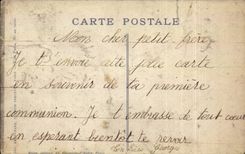 CARTE POSTALE
Mon cher petit frère
Je t'envoie cette jolie carte
en souvenir de ta première
communion. Je t'embrasse de tout cœur
en espérant bientôt te revoir